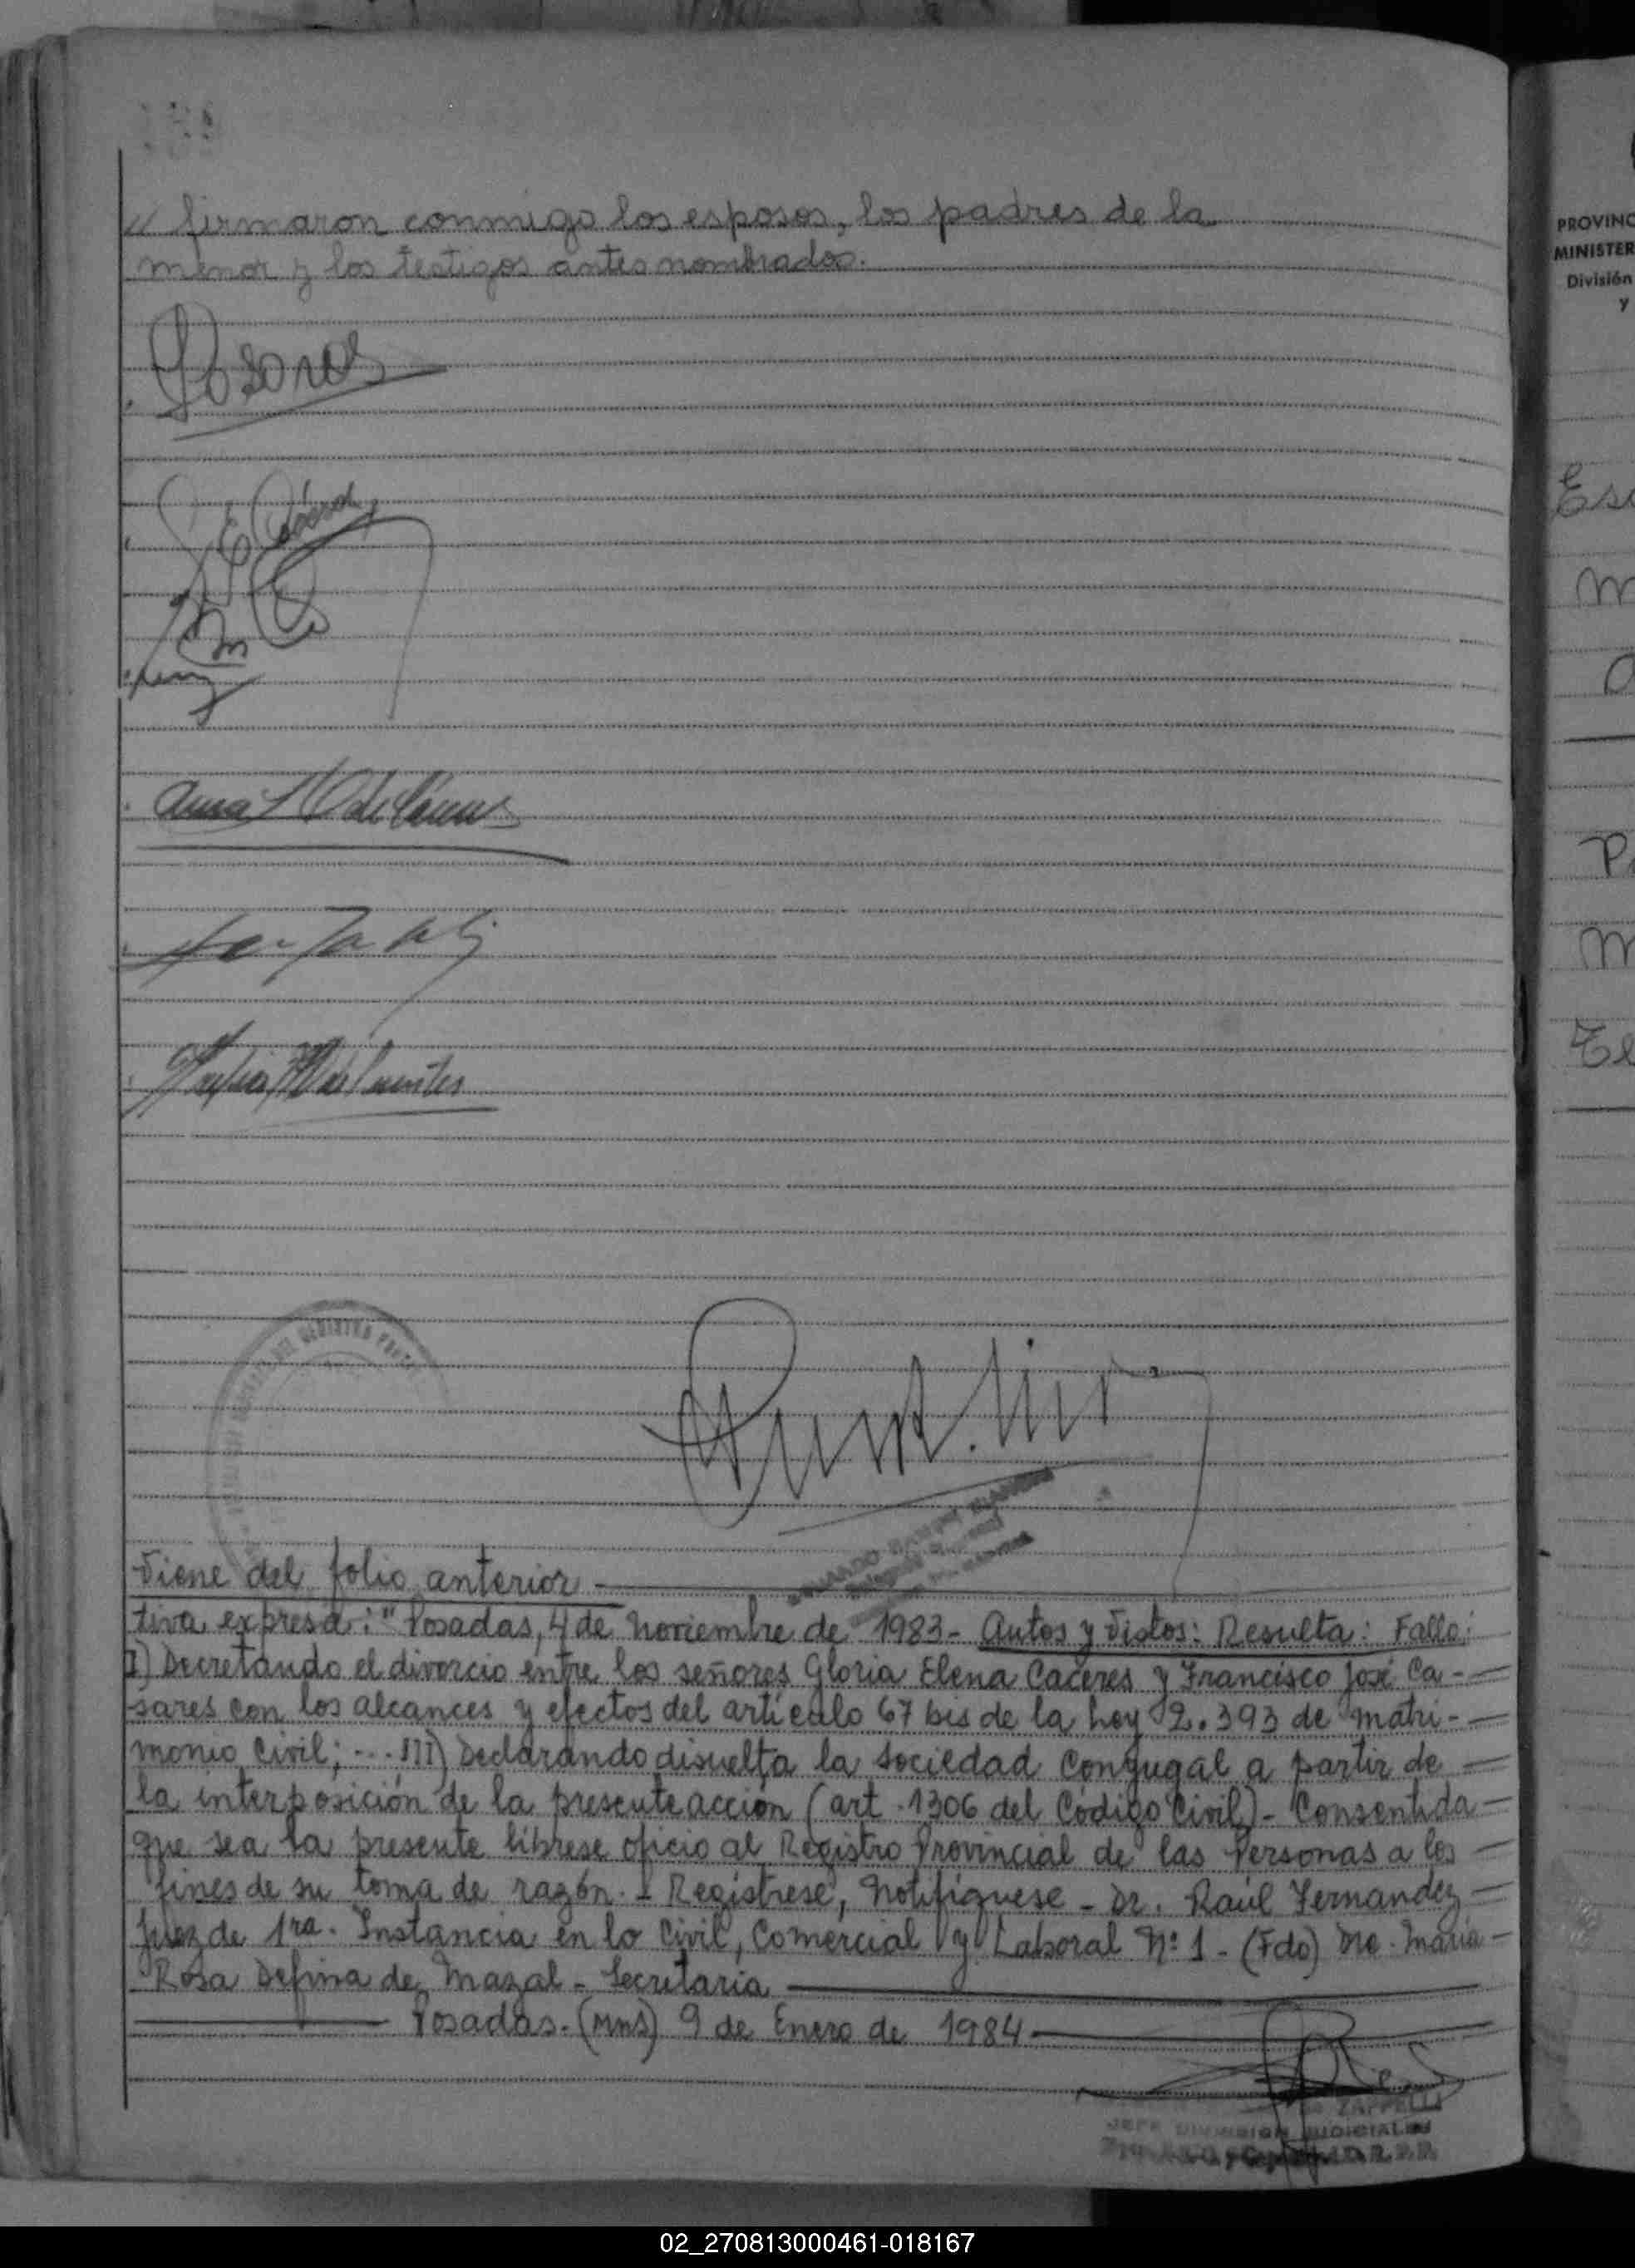 // firmaron conmigo los esposos, los padres de la
menor y los testigos antes nombrados.
Viene del folio anterior
tiva expresa: "Posadas, 4 de Noviembre de 1983- Autos y Vistos: Resulta: Fallo:
I) Decretando el divorcio entre los señores Gloria Elena Caceres y Francisco José Ca-
sares con los alcances y efectos del artículo 67 bis de la Ley 2.393 de matri-
monio Civil; -...III) Declarando disuelta la sociedad Conyugal a partir de
la interposición de la presente acción (art. 1306 del Código Civil)- Consentida
que sea la presente líbrese oficio al Registro Provincial de las Personas a los
fines de su toma de razón.- Regístrese, Notifíquese - Dr. Raúl Fernandez
Juez de 1ra. Instancia en lo Civil, Comercial y Laboral Nº 1 - (Fdo) Dra. María
Rosa Defina de Mazal - Secretaria
Posadas. (Mns) 9 de Enero de 1984
ZAPPELLI
JEFE DIVISION JUDICIALES
PROVINC
MINISTER
División
y
Es
M
P
M
Te
02_270813000461-018167